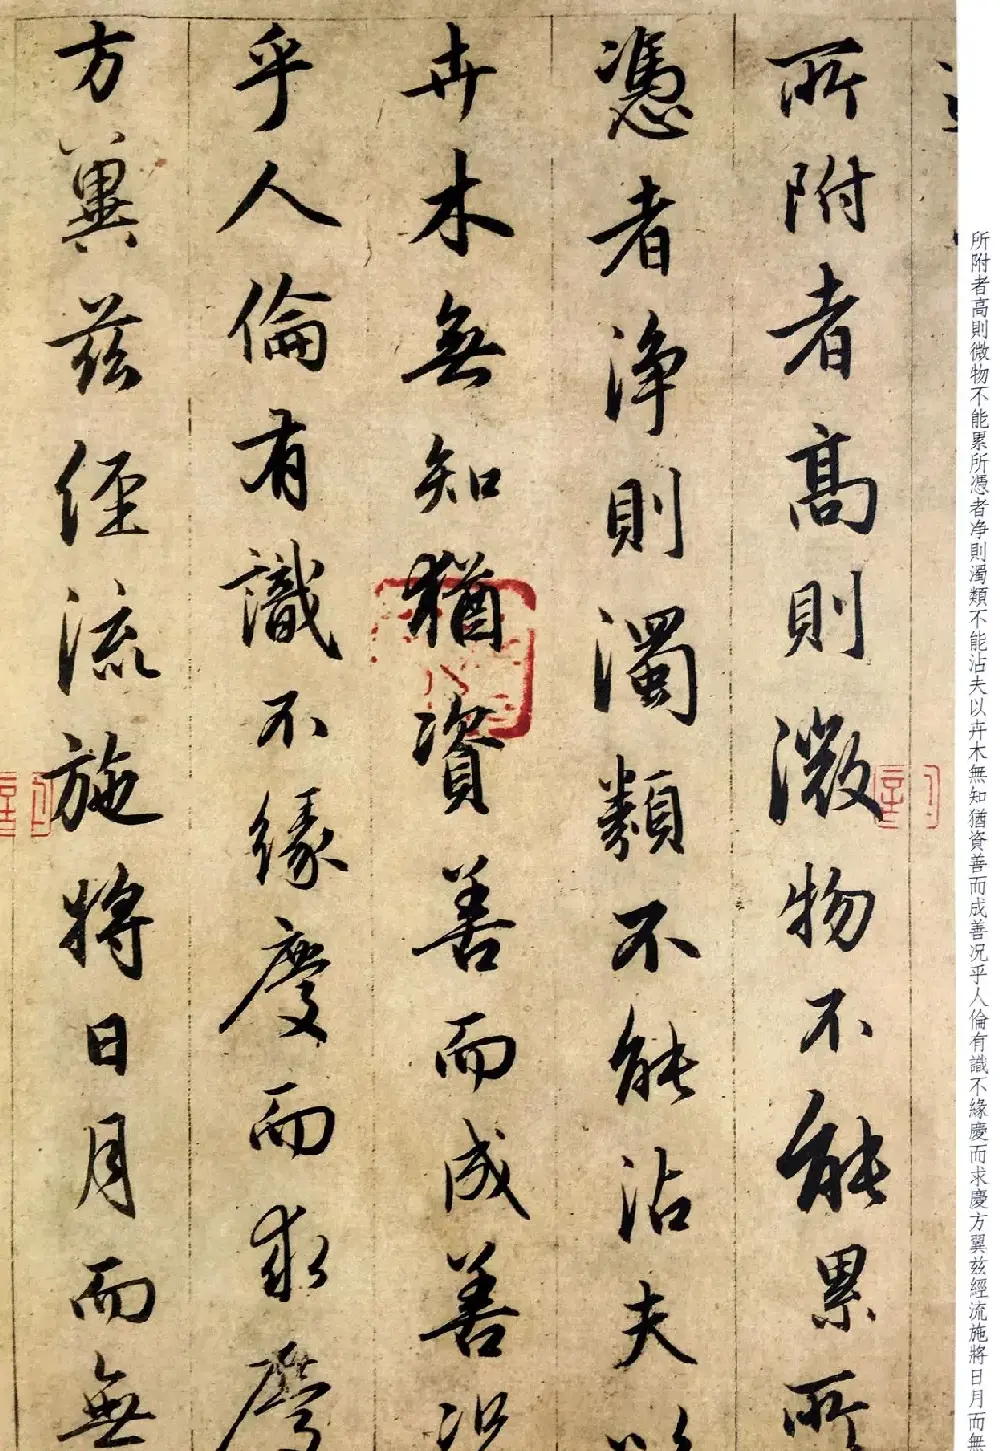 所附者高則微物不能累所
憑者净則濁類不能沾夫以
卉木無知猶資善而成善况
乎人倫有識不緣慶而求慶
方冀茲經流施將日月而無
所附者高則微物不能累所憑者净則濁類不能沾夫以卉木無知猶資善而成善况乎人倫有識不緣慶而求慶方翼兹經流施將日月而無